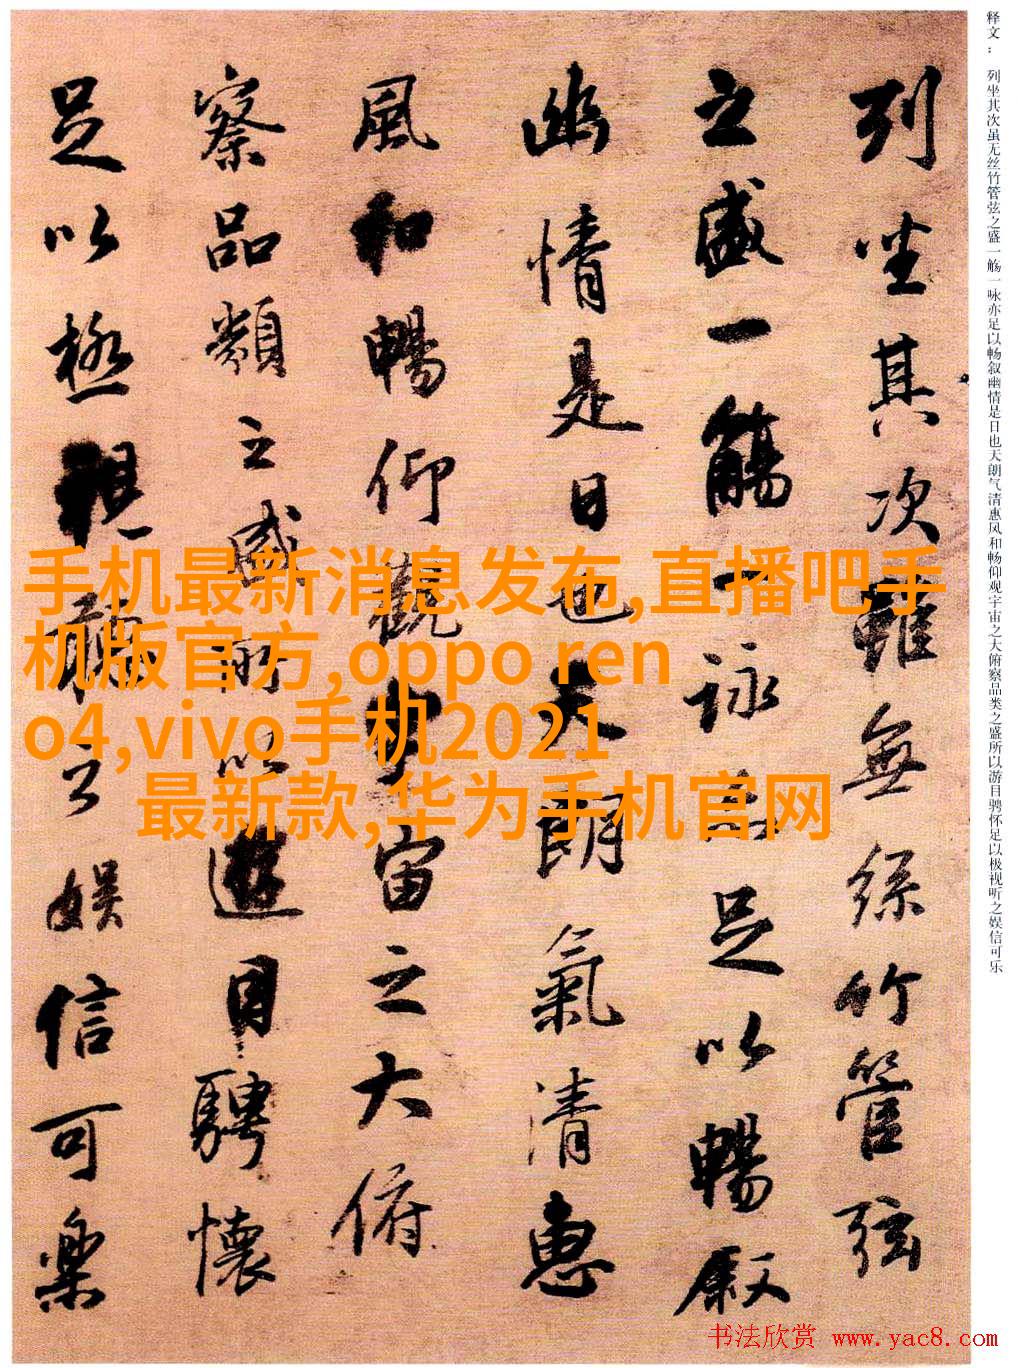 释文：列坐其次虽无丝竹管弦之盛一觞一咏亦足以畅叙幽情是日也天朗气清惠风和畅仰观宇宙之大俯察品类之盛所以游目骋怀足以极视听之娱信可乐
列坐其次雖無絲竹管弦
之盛一觴一詠亦足以暢叙
幽情是日也天朗氣清惠
風和暢仰觀宇宙之大俯
察品類之盛所以遊目騁懷
足以極視聽之娛信可樂
手机最新消息发布,直播吧手
机版官方,oppo ren
o4,vivo手机2021
最新款,华为手机官网
书法欣赏 www.yac8.com